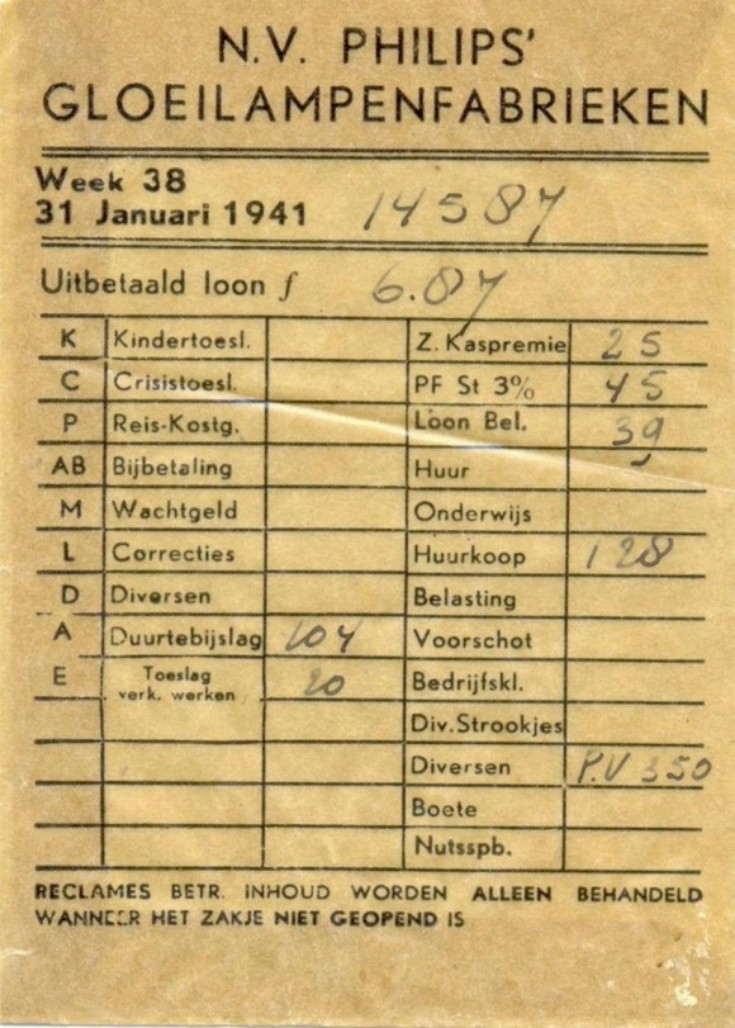 N.V. PHILIPS'
GLOEILAMPENFABRIEKEN
Week 38
31 Januari 1941 14587
Uitbetaald loon ƒ 6.87
K Kindertoesl. Z. Kaspremie 25
C Crisistoesl. PF St 3% 45
P Reis-Kostg. Loon Bel. 39
AB Bijbetaling Huur
M Wachtgeld Onderwijs
L Correcties Huurkoop 128
D Diversen Belasting
A Duurtebijslag 104 Voorschot
E Toeslag verk. werken 20 Bedrijfskl.
Div. Strookjes
Diversen P.V 350
Boete
Nutsspb.
RECLAMES BETR. INHOUD WORDEN ALLEEN BEHANDELD
WANNEER HET ZAKJE NIET GEOPEND IS